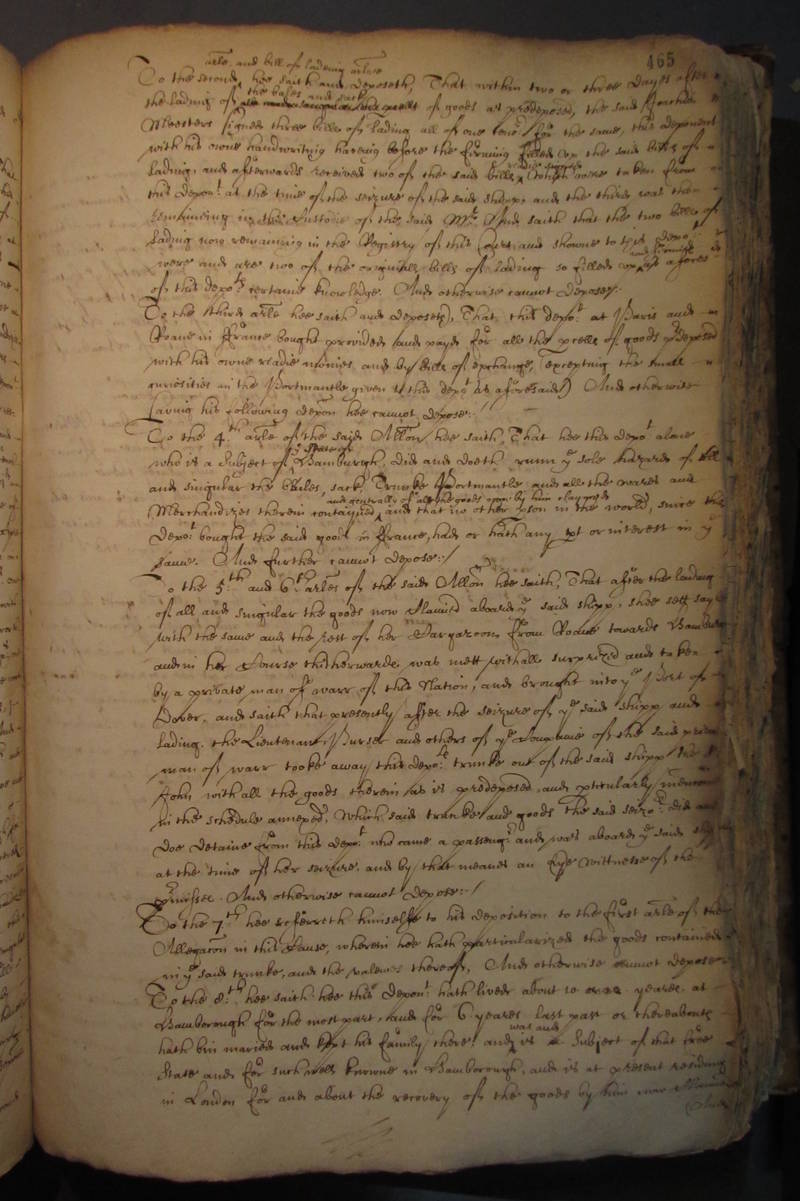 465
arle. and bill of lading arlate
To the second, hee saith and deposeth, That within two or three dayes after
the lading of the bales and sack of goods as predeposed, the said
Meesters signed three bills of lading all of one for the same, this deponent
with his owne handwriting haveing before the firming filled up the said bills of
lading, and afterwards received two of the said bills, which were taken from
this depont. at the time of the seizure of the said shipp, and the third was then
remaineing in the Custodie of the said Mr. And saith that the two bills of
lading now remaining in the Registry of this Court and showne to this depot.
were and are two of the originall bills of lading so filled up and firmed as afores
of this depots certaine knowledge. And otherwise cannot depose./
To the third arle hee saith and deposeth, That this depot. at Paris and
Roane in ffrance bought provided and payd for all the prcells of goods predeposed
with his owne readie monies, and by bills of exchange, (excepting the small
curiosities in the Portmantle given to this depot as aforesaid) And otherwise
saving his following depon hee cannot depose:/
To the 4th. arle of the said Allon hee saith, That hee this depot alone
who is a Subject of ye State of Hamburgh, did and doeth runn ye sole hazards of all
and singular the Bailes, sack, Trunke Portmantle and all the wares and
and generally of all the goods by him claymed
Merchandizes therein contayned, and that no other pson in the world, since this
Depot bought the said goods in ffrance, had or hath any pt or interest in ye
same. And further cannot depose:/
To the 5th. and 6th. arles of the said Allon hee saith, That after the lading
of all and singular the goods now claimed aboard ye said shipp, shee sett sayle
with the same and the rest of her Cargazoon from Roane towards Hamburgh
and in her Course thitherwards was mett withall, surprized and taken
by a private man of warr of this Nation, and brought into ye Port of
Dover, and saith that presently after the seizure of ye said shipp and
lading, the Lieutenant, Purser and others of ye Companie of the said private
man of warr tooke away this depots trunke out of the said shipp the St
John with all the goods therein as is predeposed, and pticularly mentioned
in the schedule annexed, Which said trunke and goods the said seizors. did and
doe detaine from this depot. who came a passengr. and was aboard ye said shipp
at the time of her seizure, and by that meanes an Eye wittnesse of the
prmisses. And otherwise cannot depose:/
To the 7th. hee referreth himselfe to his deposition to the first arle of this
Allegacon in this Cause, wherein hee hath particularized the goods contained
in ye said trunke, and the valewes thereof, And otherwise cannot depose
To the 8th. hee saith hee this Depont. hath lived about 10 yeares at
Hamborough for the most part, and for 6 yeares last past or thereabouts
hath bin maried and kept his family there, and was and is a Subject of that free
State and for such well knowne in Hamborough, and is at present residing
in London for and about the recovery of the goods by him now claimed
And